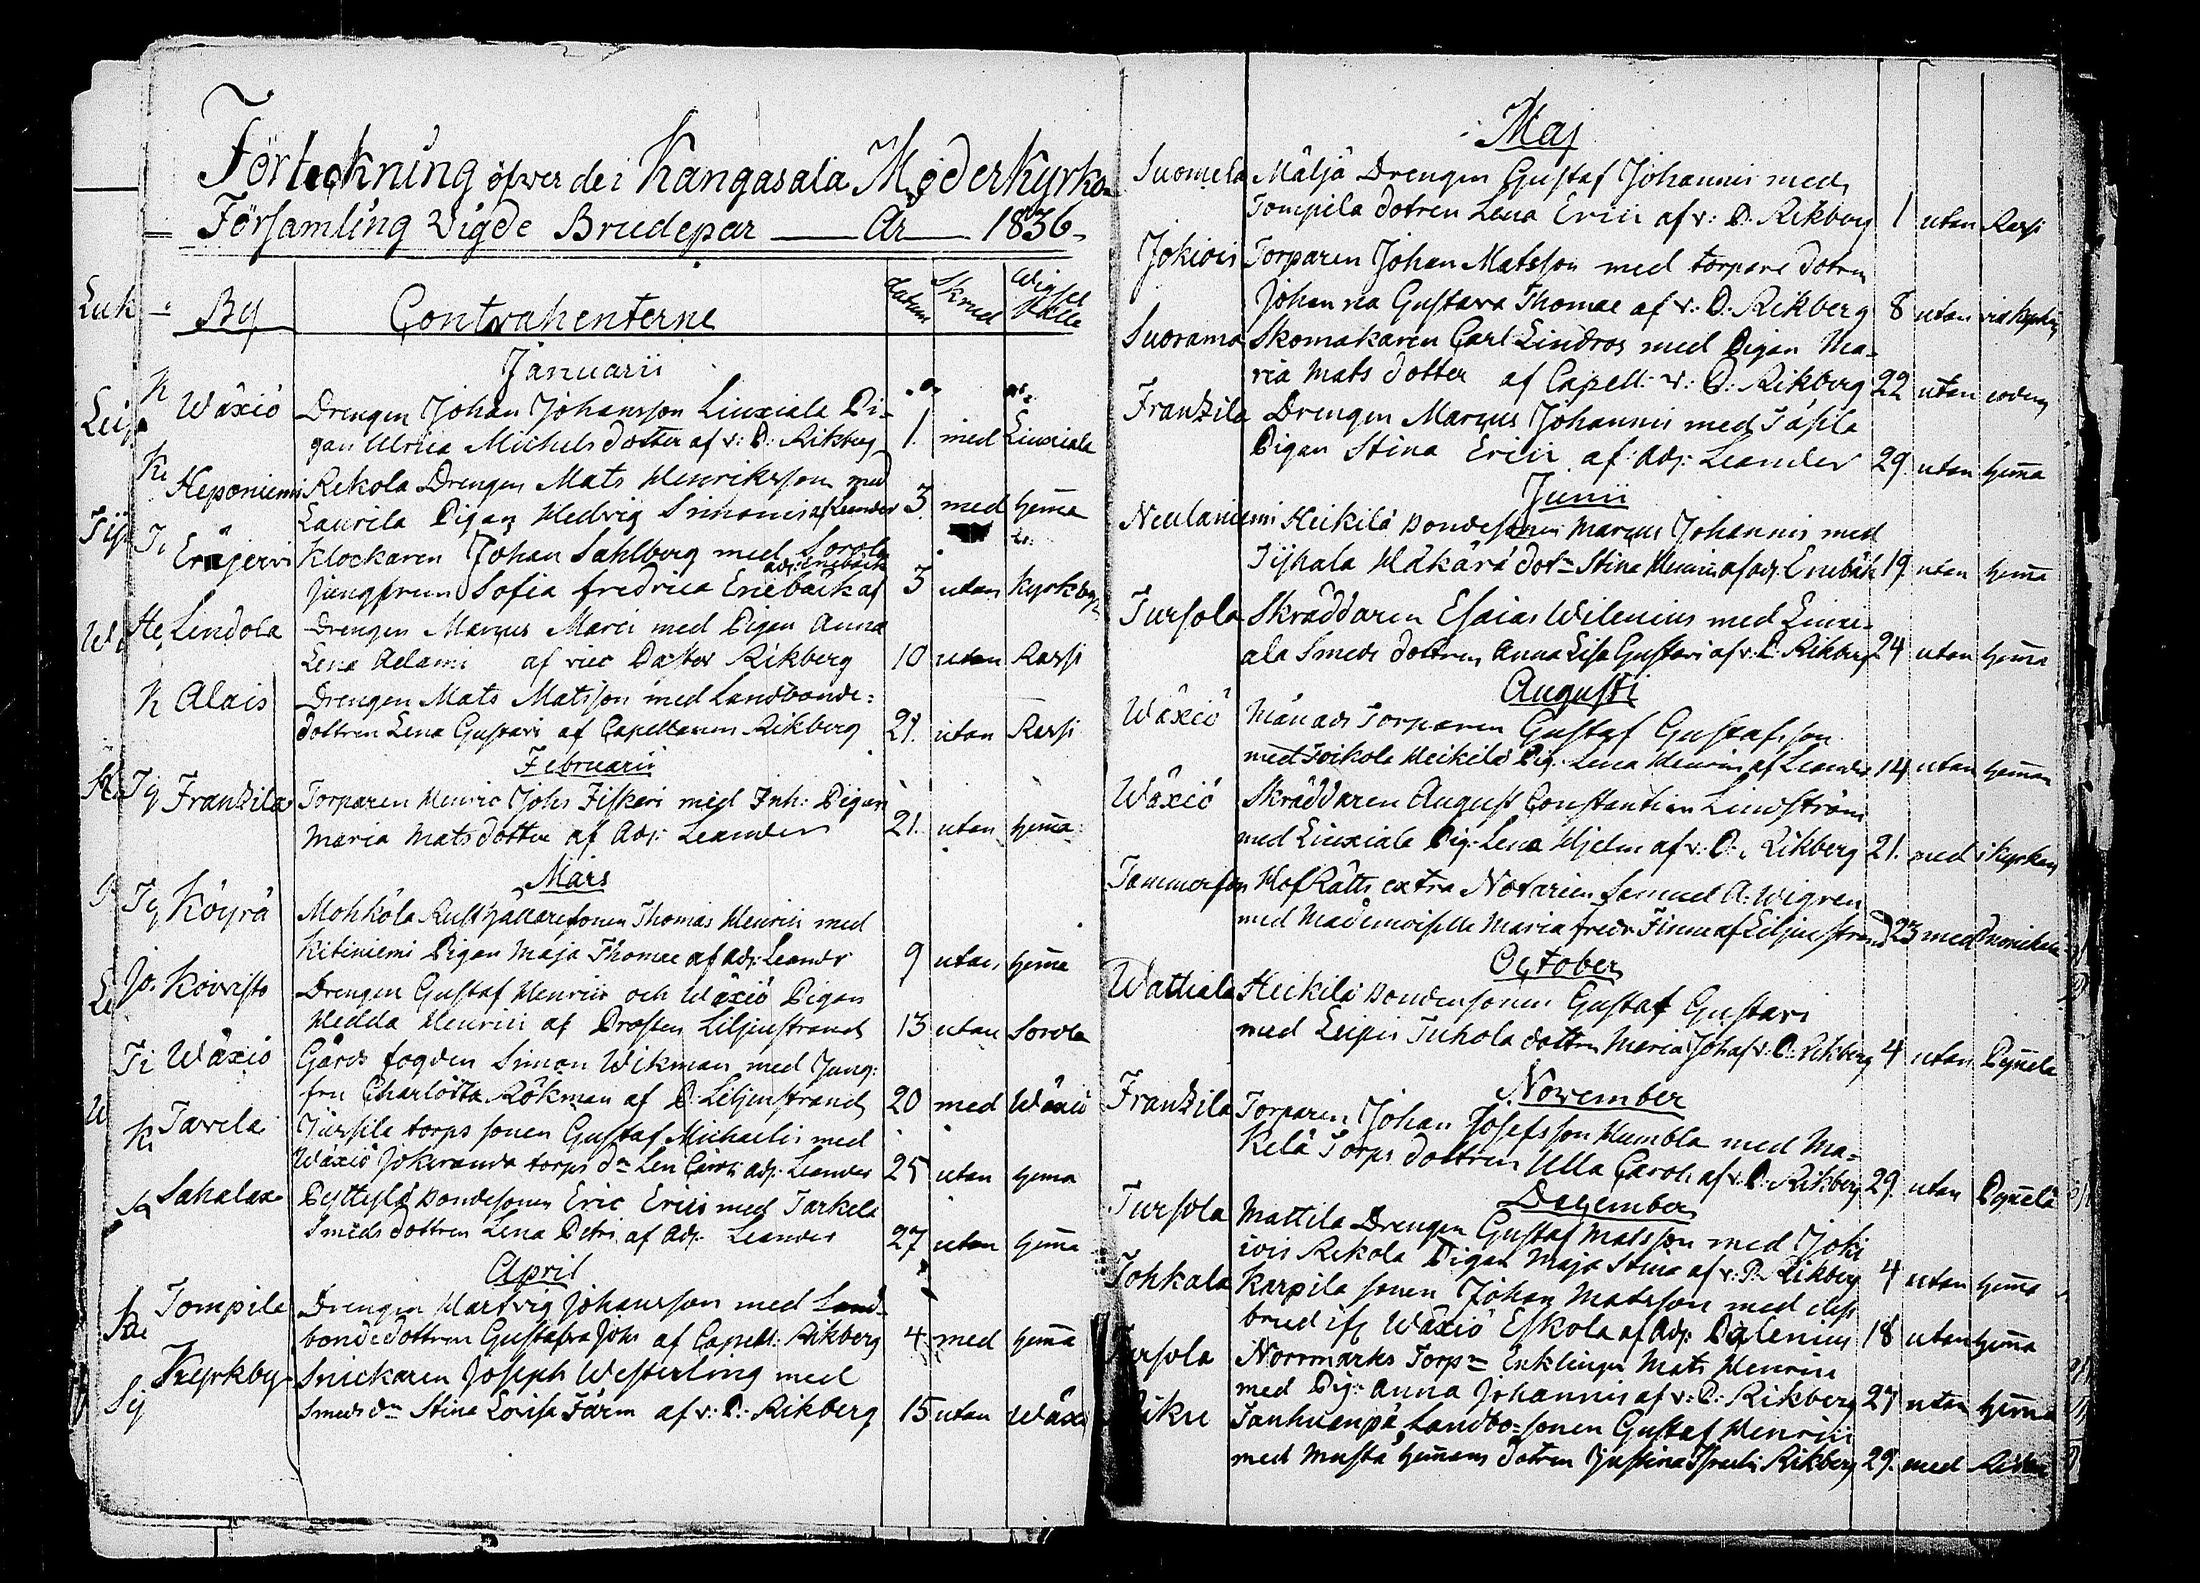 Förteckning öfver de i Kangasala Moderkyrko
Församling Vigde Brudepar — År — 1836
By Contrahenterne datum Skrud Wigsel Stalle
Januarii
Wäxiö Drengen Johan Johansson Liuxiala Pi-
gan Ulrica Michelsdotter af v: P: Rikberg 1. med Liuxiala
Heponiemi Rekola Drengen Mats Henriksson med
Laurila Pigan Hedvig Simonis af Leander 3. med hema
Eräjervi Klockaren Johan Sahlberg med Sorola
jungfrun Sofia fredrica Enebäck af adj: Enebäck 3 utan Kyrkby
Lendola Drengen Marcus Marci med Pigan Anna
Lena Adami af vice Pastor Rikberg 10 utan Ressi
Alais Drengen Mats Matsson med Landbonde-
dottren Lena Gustavi af Capellanen Rikberg 21. utan Ressi
Februarii
Franzila Torparen Henric Johs Fiskari med Inh: Pigan
Maria Mats dotter af Adj: Leander 21. utan hema
Mars
Köyrä Mohköla Rusthållaresonen Thomas Henrici med
Kitiniemi Pigan Maja Thomae af adj: Leandr 9 utan hema
Koivisto Drengen Gustaf Henrici och Wäxiö Pigan
Hedda Henrici af Prosten Liljenstrand 13 utan Sorola
Wäxiö Gårds fogden Simon Wikman med Jung-
fru Charlotta Rökman af P: Liljenstrand 20 med Wäxiö
Tavela torps sonen Gustaf Michaelis med
Wäxiö torps dn Len adj: Leander 25 utan hema
Sahalax bondesonen Eric Erici med Tarkela
Smeds dottren Lena Petri af Adj: Leander 27 utan hema
April
Tompila Drengen Hartvig Johansson med Land-
bonde dottren Gustafva Johs af Capell: Rikberg 4 med hema
Kyrkby Snickaren Joseph Westerling med
Smeds dn Stina Lovisa Färm af v: P: Rikberg 15 utan Wäxiö
Maj
Suomela Mäljä Drengen Gustaf Johannis med
Tompila dotren Lena Erici af v: P: Rikberg 1 utan Ressi
Jokiois Torparen Johan Matsson med torpare dotren
Johanna Gustava Thomae af v: P: Rikberg 8 utan vid kyrkan
Suorama Skomakaren Carl Lindros med Pigan Ma-
ria Mats dotter af Capell: v: P: Rikberg 22 utan
Franzila Drengen Marcus Johannis med
Pigan Stina Erici af Adj: Leander 29. utan hema
Junii
Neulaniemi Heikilä bondesonen Marcus Johannis med
Tijhala Häkärä dotn Stina Henrici af adj: Enebäk 19 utan hema
Tursola Skräddaren Esaias Wilenius med Liuxi-
ala Smeds dottren Anna Lisa Gustavi af v: P. Rikberg 24 utan hema
Augusti
Wäxiö Månads Torparen Gustaf Gustafsson
med Toikola Heikilä Pig: Lena Henrici af Leander 14 utan heman
Wäxiö Skräddaren August Constantin Lindström
med Liuxiala Pig: Lena Hjelm af v: P: Rikberg 21. med i kyrkan
Tammerfors Hof Rätts extra Notarien Samuel A: Wigren
med Mademoiselle Maria fredr Finne af Liljenstrand 23 med
October
Wattiala Heikilä bondensonen Gustaf Gustavi
med Leipis Tuhola dottren Maria Joh af v: P: Rikberg 4 utan Pynnelä
November
Franzila Torparen Johan Josefsson Humbla med Ma-
kelä Torps dottren Ulla Carols af v: P: Rikberg 29. utan Pynnelä
December
Tursola Mattila Drengen Gustaf Matsson med Joki
iois Rekola Pigan Maja Stina af v: P: Rikberg 4 utan hema
Tohkala Karpila sonen Johan Matsson med
Wäxiö Eskola af Adj: Palenius 18 utan hema
Tursola Norrmarks Torpn Enklingen Mats Henrici
med Pig: Anna Johannis af v: P: Rikberg 27 utan hema
Riku Tanhuanpä Landbo-sonen Gustaf Henrici
med Musta hemans dotren Justina Israels Rikberg 29. med